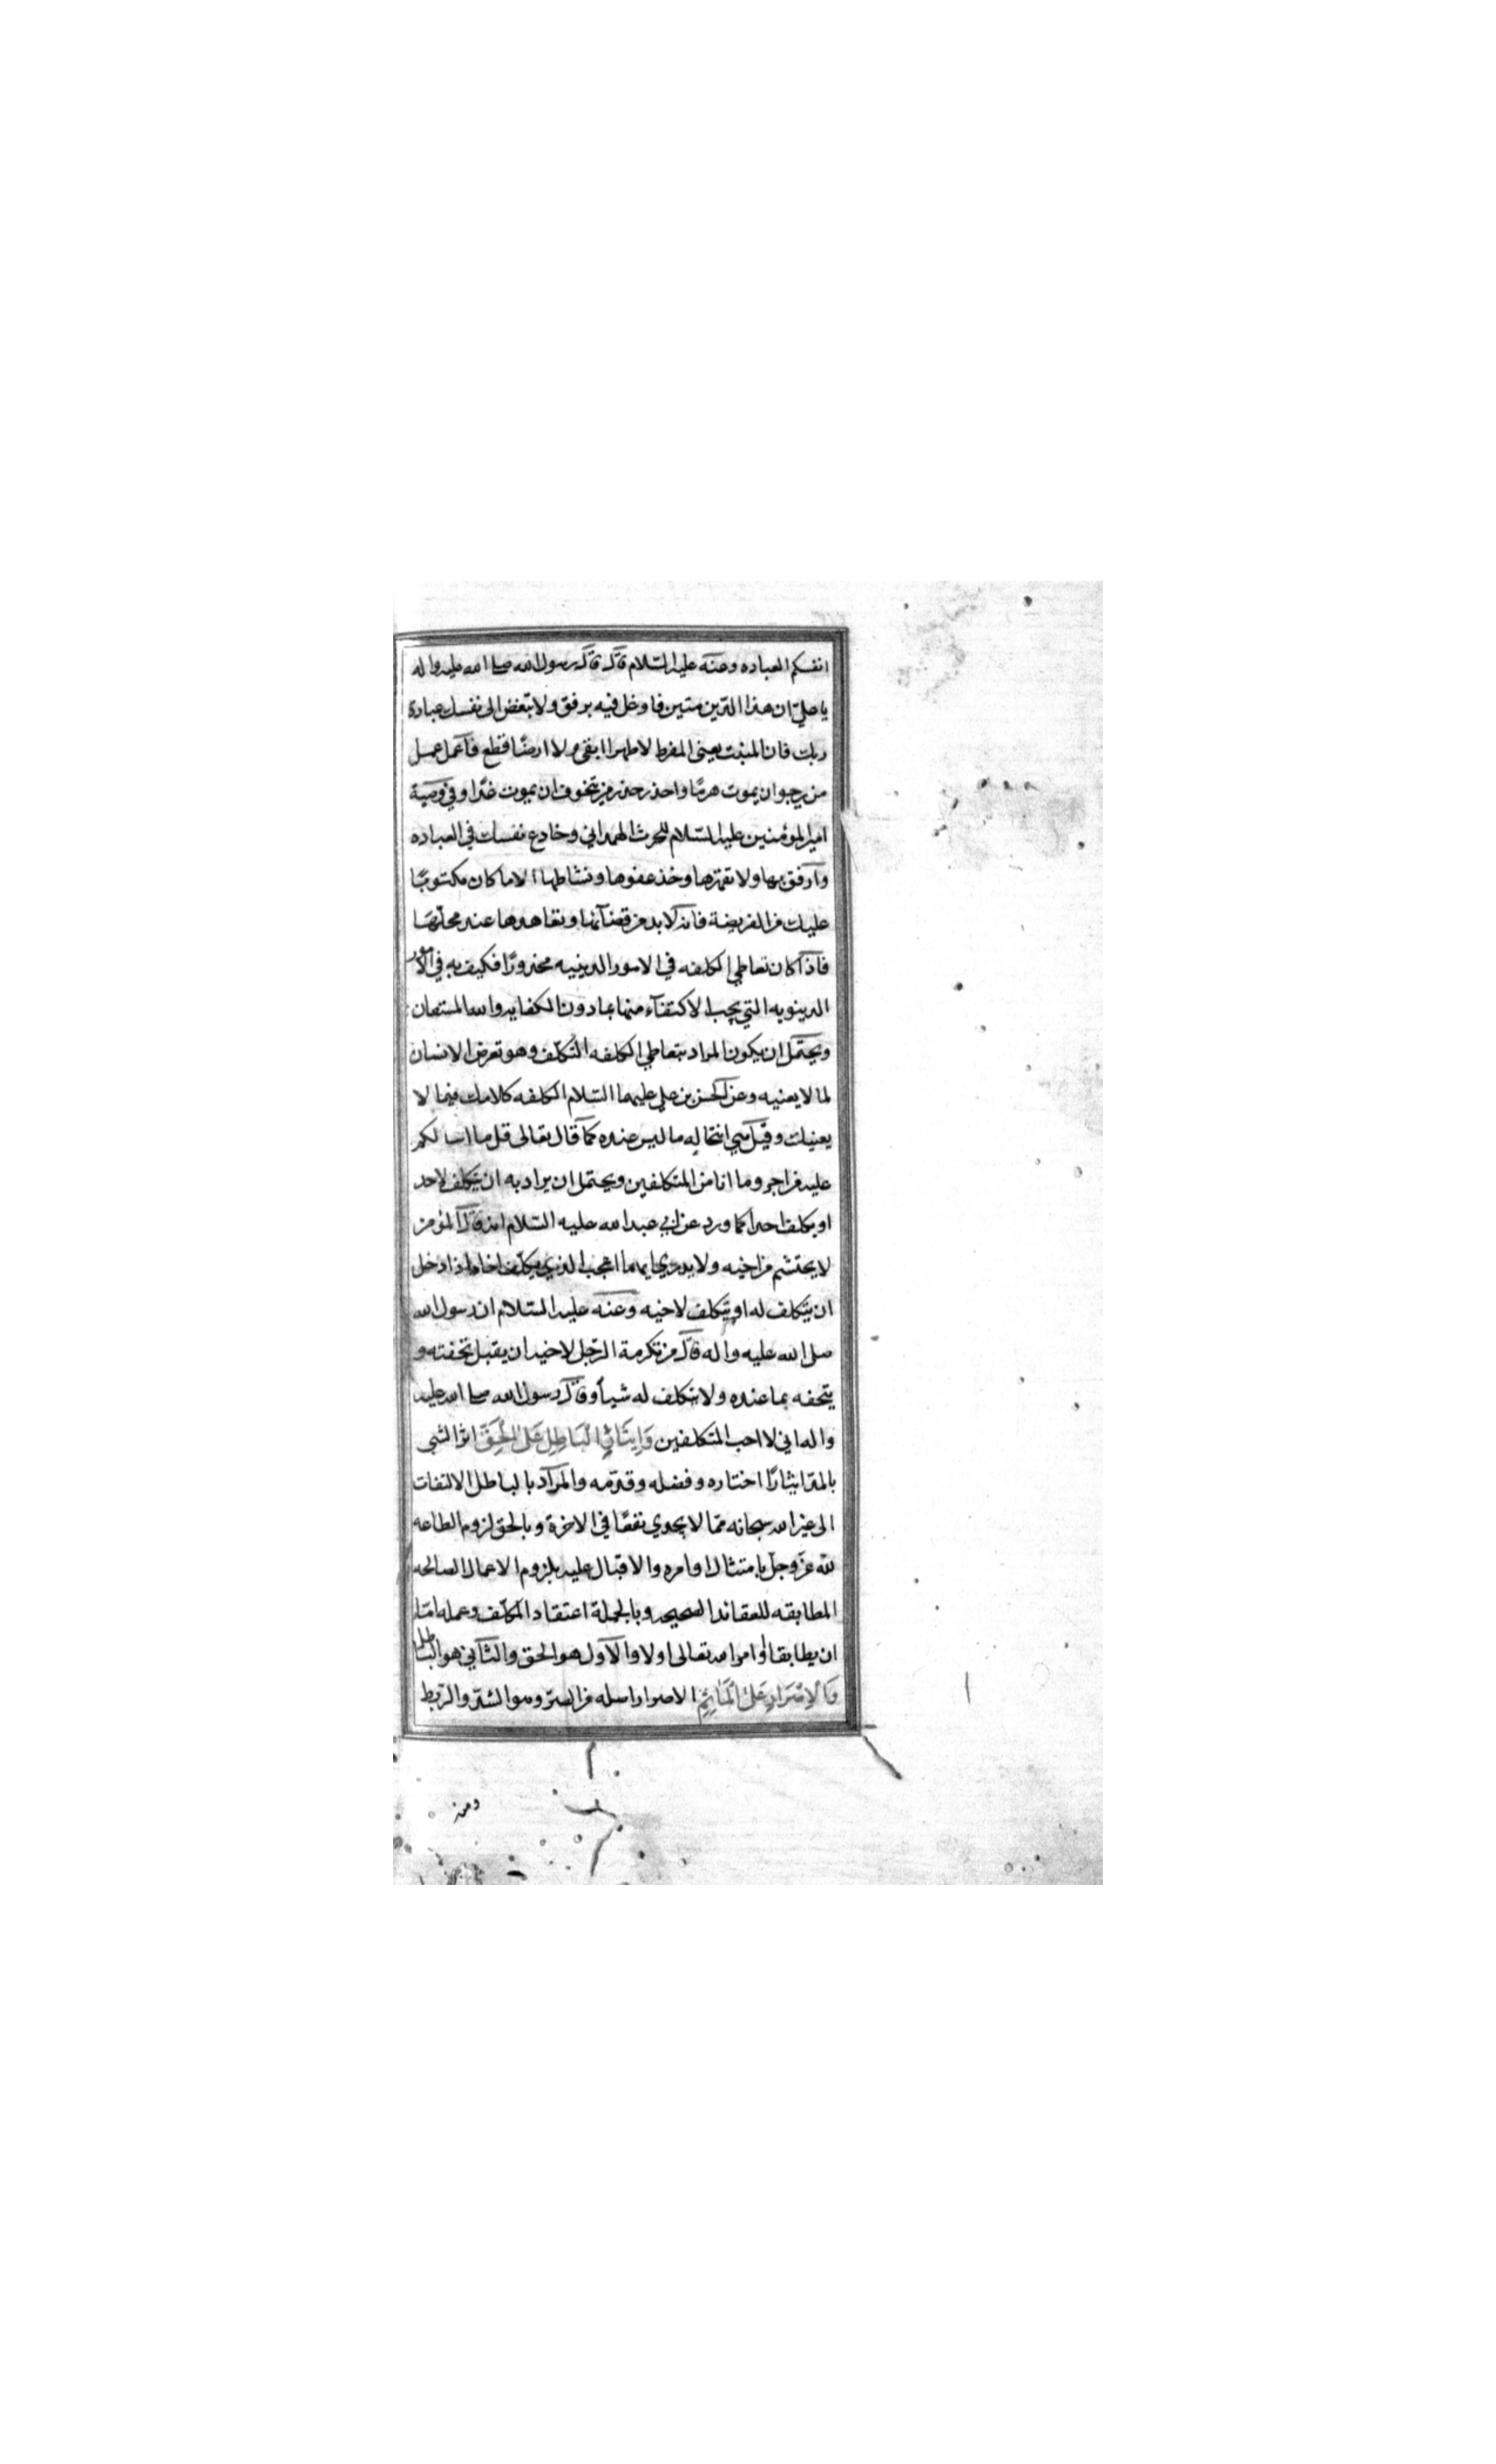 انفسكم العباده وعنه عليه السلام قال قال رسول الله صلى الله عليه واله
يا علي ان هذا الدين متين فاوغل فيه برفق ولا تبغض الى نفسك عبادة
ربك فان المنبت يعني المفرط لا ظهرا ابقى ولا ارضًا قطع فاعمل عمل
من يرجو ان يموت هرمًا واحذر حذر من يتخوف ان يموت غدًا وفي وصية
امير المؤمنين عليه السلام للحرث الهمداني وخادع نفسك في العباده
وارفق بها ولا تقهرها وخذ عفوها ونشاطها الا ما كان مكتوبًا
عليك من الفريضة فانه لا بد من قضآئها وتعاهدها عند محلّها
فاذا كان تعاطي الكلفه في الامور الدينيه محذورًا فكيف به في الامور
الدينويه التي يجب الاكتفآء منها بما دون الكفايه والله المستعان
ويحتمل ان يكون المراد بتعاطي الكلفه التكلّف وهو تعرض الانسان
لما لا يعنيه وعن الحسن بن علي عليهما السلام الكلفه كلامك فيما لا
يعنيك وقيل هي انتحاله ما ليس عنده كما قال تعالى قل ما اسالكم
عليه من اجر وما انا من المتكلفين ويحتمل ان يراد به ان يتكلف لاحد
او يكلف احدا كما ورد عن ابي عبد الله عليه السلام انه قال المؤمن
لا يحتشم من اخيه ولا يدري ايهما اعجب الذي يكلف اخاه اذا دخل
ان يتكلف له او يتكلف لاخيه وعنه عليه السلام ان رسول الله
صلى الله عليه واله قال من تكرمة الرّجل لاخيه ان يقبل تحفته و
يتحفه بما عنده ولا يتكلف له شيأ وقال رسول الله صلى الله عليه
واله اني لا احب المتكلفين وَإيثَارِ الْبَاطِلِ عَلَى الْحَقِّ اثر الشي
بالمدّ ايثارًا اختاره وفضله وقدّمه والمراد بالباطل الالتفات
الى غير الله سبحانه ممّا لا يجدي نفعًا في الاخرة وبالحق لزوم الطاعه
لله عزّ وجلّ بامتثال اوامره والاقبال عليه بلزوم الاعمال الصالحه
المطابقه للعقائد الصحيحه وبالجملة اعتقاد المكلّف وعمله امّا
ان يطابقا اوامر الله تعالى اولا والاول هو الحق والثاني هو الباطل
وَالْإِصْرَارِ عَلَى الْمَأثَمِ الاصرار اصله من الصرّ وهو الشدّ والربط
ومنه